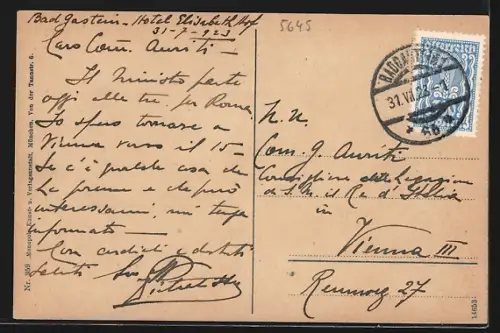 Bad Gastein - Hotel Elisabeth Hof
31-7-923
5645
Caro Com. Auriti -
Il Ministro parte
oggi alle tre, per Roma.
Io spero tornare a
Vienna verso il 15-
Se c'è qualche cosa da
La premere e che può
interessarmi, mi tenga
informato -
Con cordiali e distinti
saluti Suo
BADGASTEIN
31.VII.23
N. N.
Com. G. Auriti
Consigliere della Legazione
di S. M. il Re d'Italia
in
Vienna III
Rennweg 27
Nr. 358 Monopol-Kunst- u. Verlagsanstalt, München, Von der Tannstr. 6.
14653